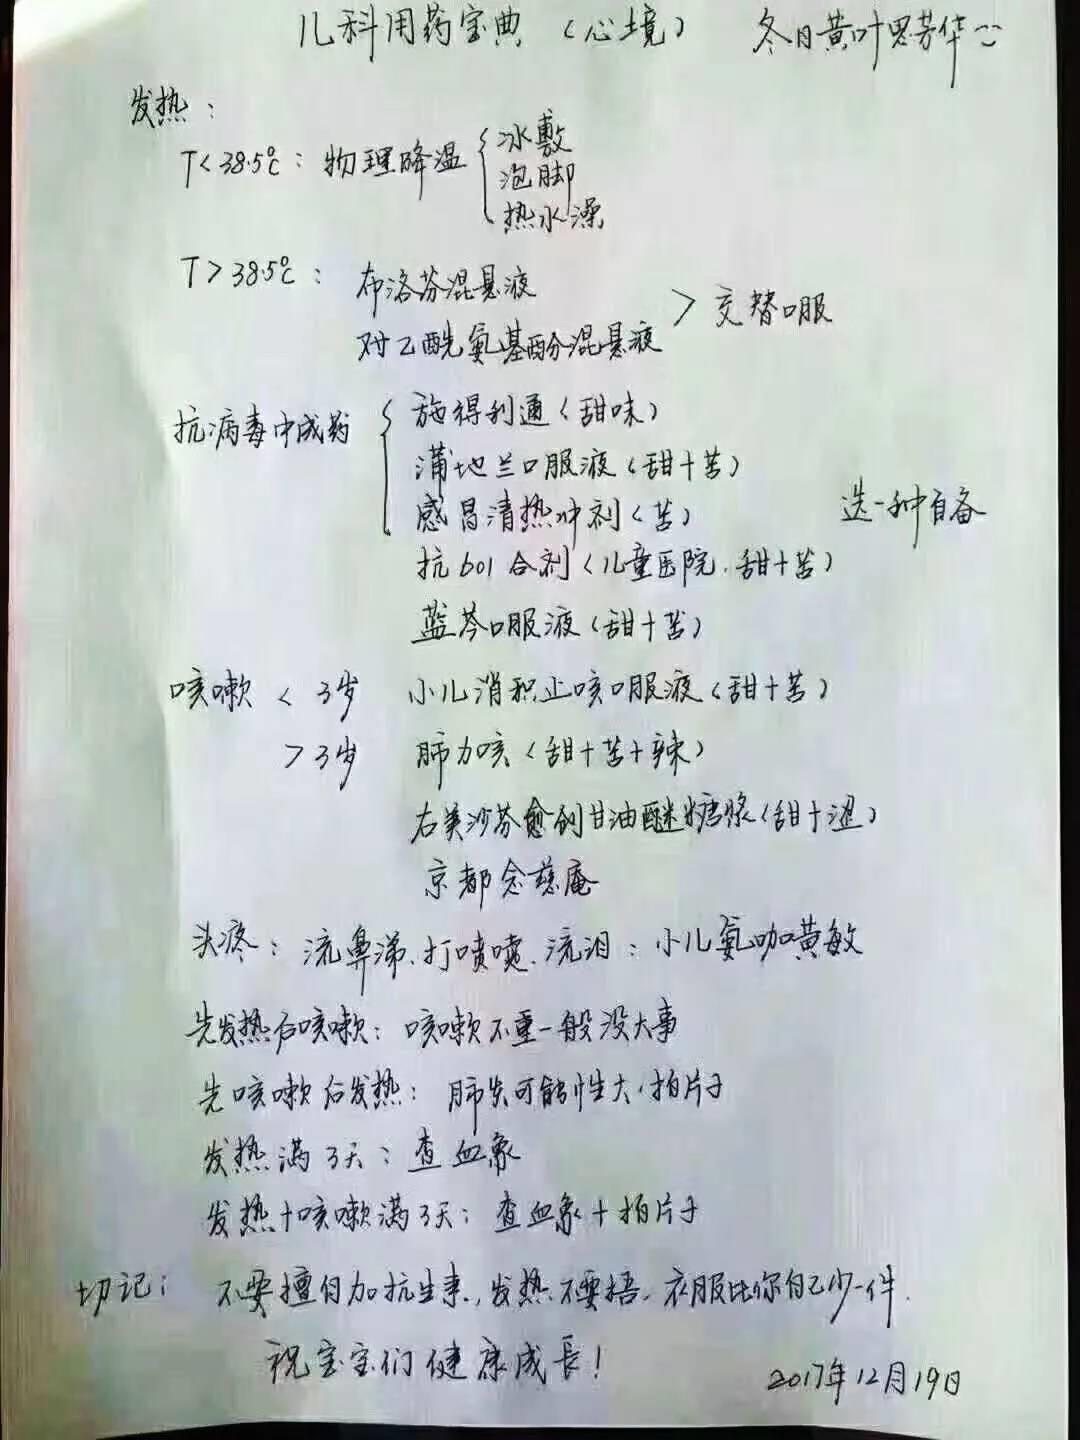 儿科用药宝典（心境） 冬日黄叶思芳华
发热：
T<38.5℃：物理降温
冰敷
泡脚
热水澡
T>38.5℃：布洛芬混悬液
对乙酰氨基酚混悬液 > 交替口服
抗病毒中成药
施得利通（甜味）
蒲地兰口服液（甜+苦）
感冒清热冲剂（苦） 选一种自备
抗601合剂（儿童医院.甜+苦）
蓝芩口服液（甜+苦）
咳嗽 < 3岁 小儿消积止咳口服液（甜+苦）
>3岁 肺力咳（甜+苦+辣）
右美沙芬愈创甘油醚糖浆（甜+涩）
京都念慈庵
头疼：流鼻涕.打喷嚏.流泪：小儿氨咖黄敏
先发热后咳嗽：咳嗽不重一般没大事
先咳嗽后发热：肺炎可能性大.拍片子
发热满3天：查血象
发热+咳嗽满3天：查血象+拍片子
切记：不要擅自加抗生素，发热不要捂.衣服比你自己少一件.
祝宝宝们健康成長！
2017年12月19日